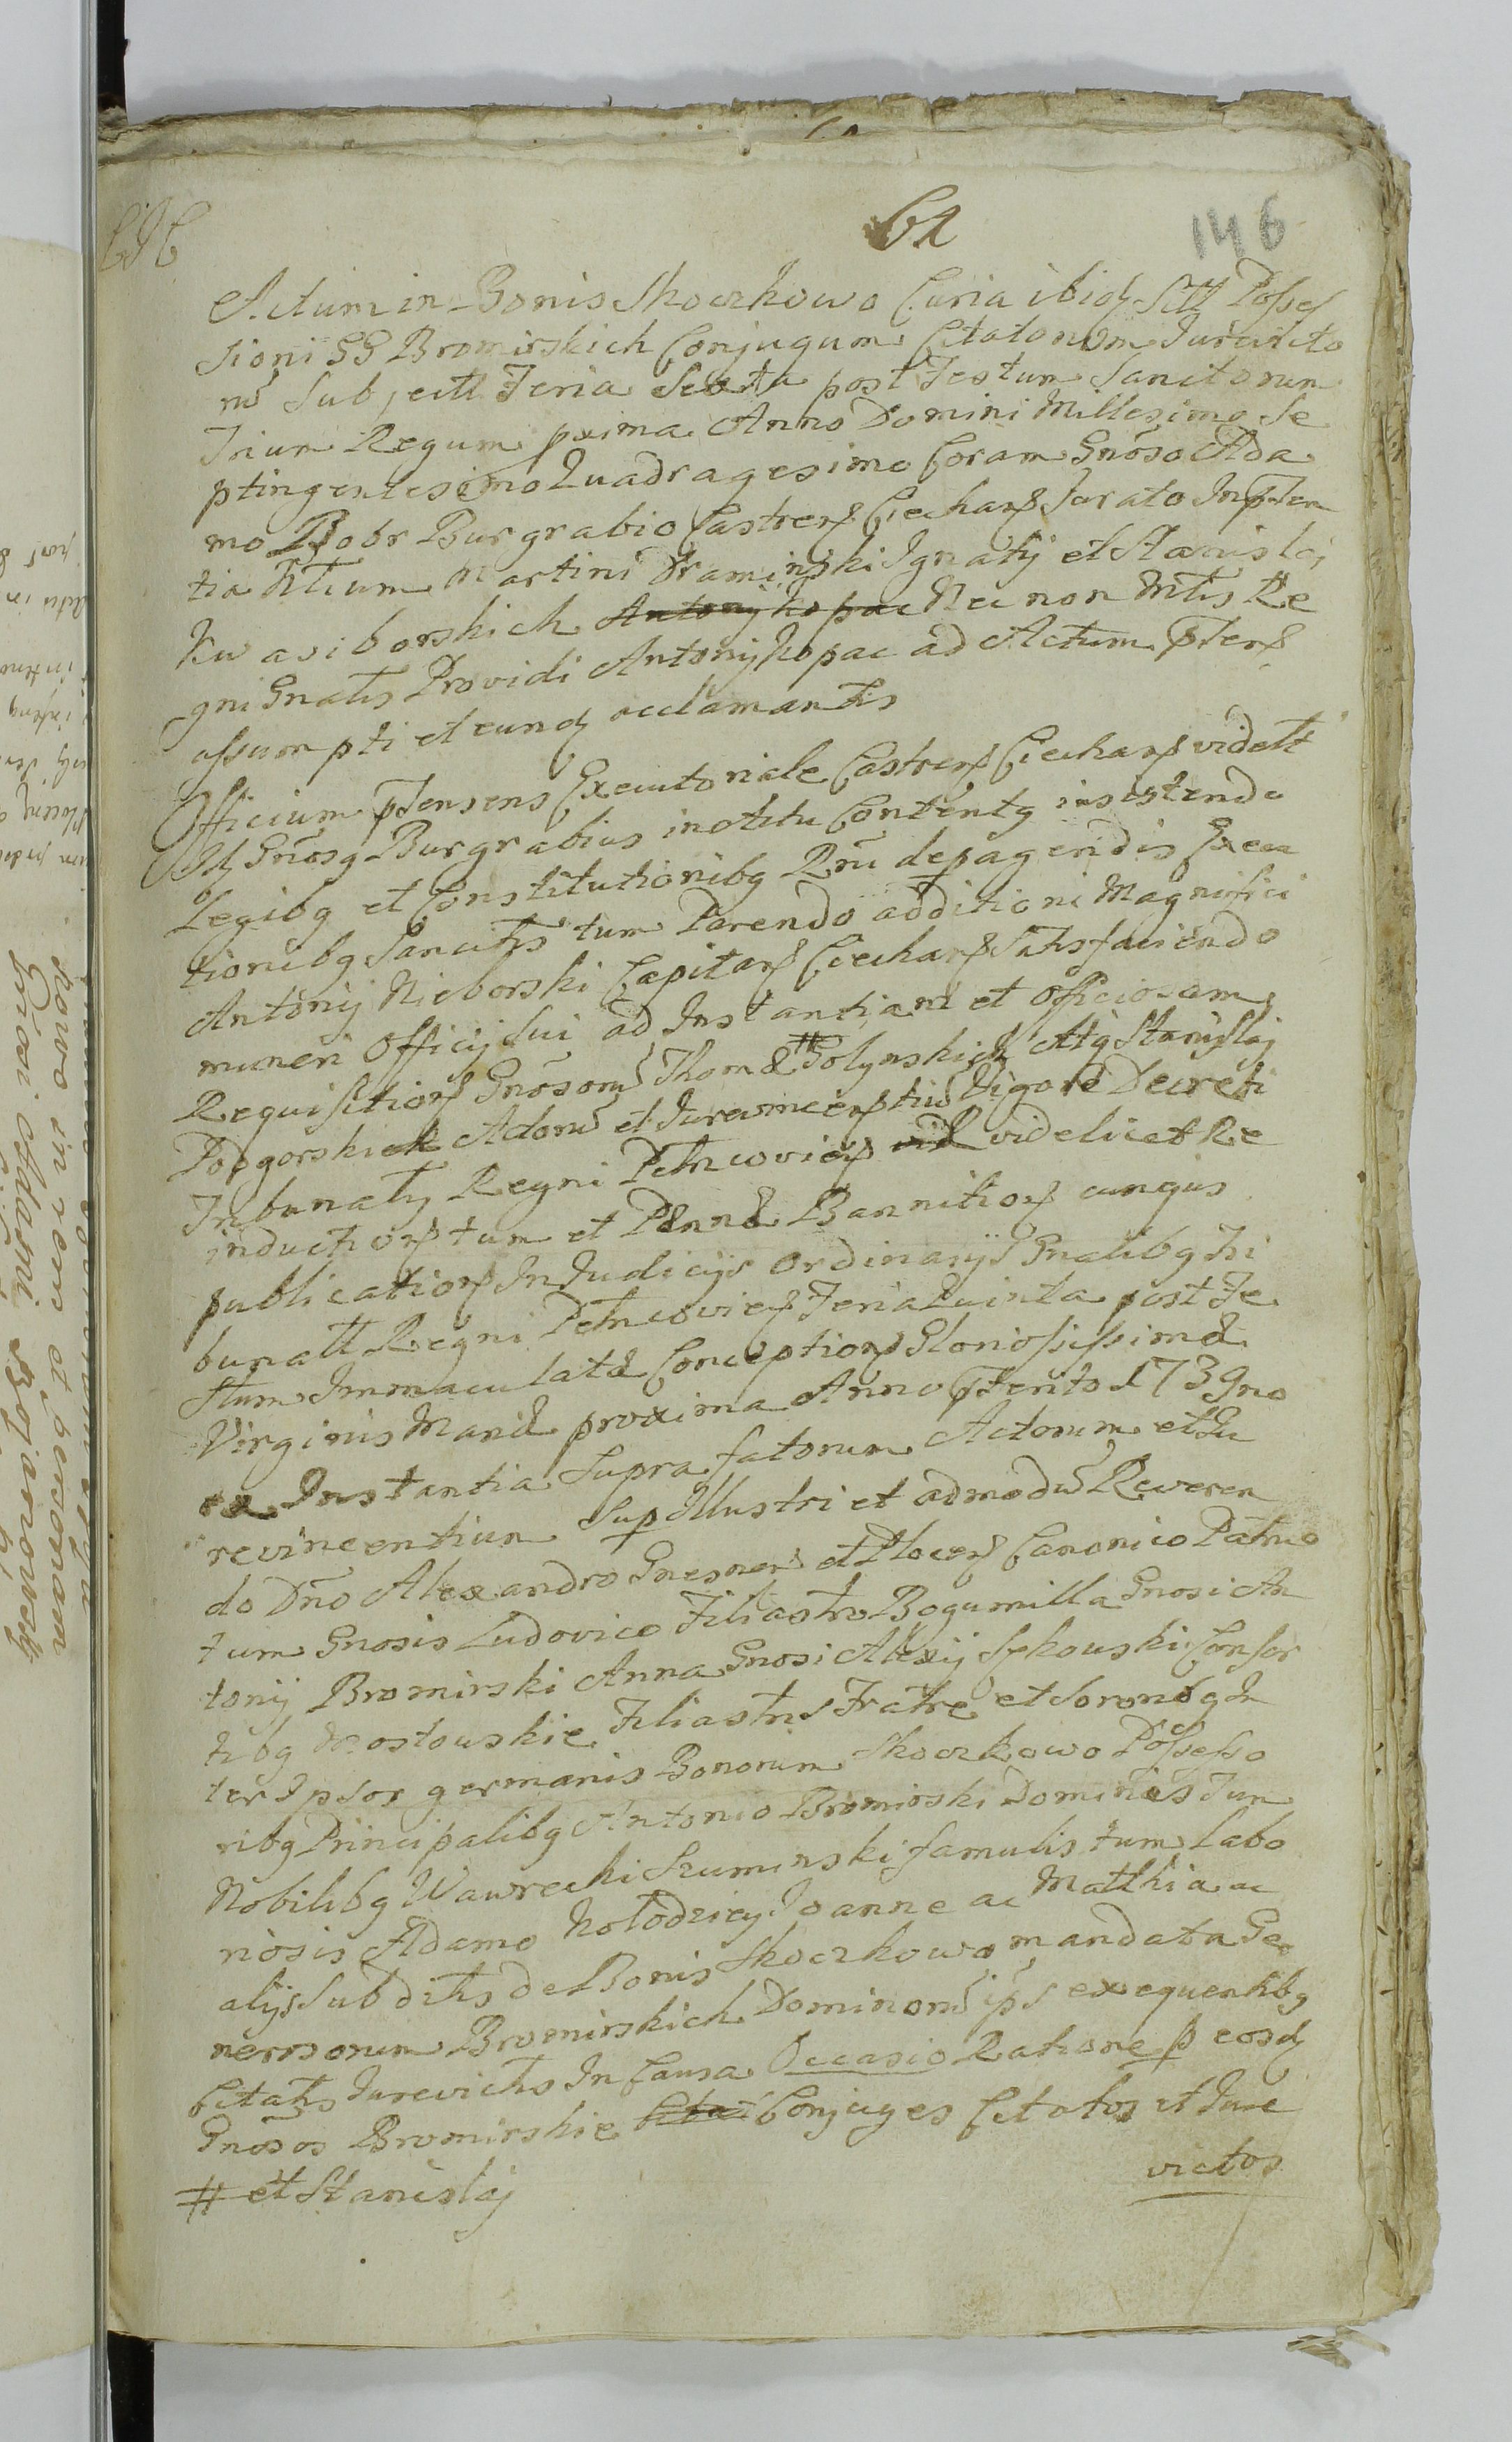 62
146
Actum in Bonis Skoczkowo Curia ibidq Stt Posses
sioni GG Bromirskich Conjugum Citatorum Jurevicto
rū Subjectt Feria Sexta post Festum Sanctorum
Trium Regum pxima Anno Domini Millesimo Se
ptingentesimo Quadragesimo Coram Gnōso Ada
mo Bobr Burgrabio Castren Ciechan Jurato In pñ
tia Nlium Martini Dramiński Ignatij et Stanislaj
Kwasiborskich Antonij Kopac Nec non Mtis Re
gni Gnalis Providi Antonij Kopac ad Actum pñten
assumpti et eundq acclamantis
Officium pñtensens Executoriale Castren Ciechan videlt
Idq Gnōsq Burgrabius inotitu Contentq insistendo
Legibq et Constitutionibq Rni de pagendis Execu
tionibq Sancitis tum Parendo additioni Magnifici
Antonij Nieborski Capitan Ciechan Satisfaciendo
muneri Officij Sui ad Instantiam et Officiosam
Requisition Gnōsorū Thomæ # Golynskich Atq Stanislaj
Podgorskich Actorū et Jurevincentiū Vigore Decreti
Tribunalis Regni Petricovien videlicet Re
induction tum et Pænæ Bannition cunqius
publication In Judicijs Ordinarijs Gnalibq Tri
bunall Regni Petricovien Feria Quinta post Fe
stum Immaculatæ Conception Gloriosissimæ
Virginis Mariæ proxima Anno pñterito 1739no
ex Instantia Supra fatorum Actorum et Ju
revincentium Sup Illustri et admodū Reveren
do Dno Alexandro Gnesnen et Plocen Canonico Patruo
tum Gnosis Ludovico Filiastro Bogumilla Gnosi An
tonij Bromirski Anna Gnosi Alexij Sękowski Consor
tibq Mostowskie Filiastris Fratre et Sororibq In
ter Ipsos germanis Bonorum Skoczkowo Possesso
ribq Principalibq Antonio Bromirski Dominis Tum
Nobilibq Wawrecki Szuminski famulis tum Labo
riosis Adamo Kołodziey Joanne ac Matthia ac
alijs Subditis de Bonis Skoczkowo mandata Ge
nerosorum Bromirskich Dominorū ips exequentibq
Citatis Jurevictis In Causa Occasio Ratione p eosdq
Gnosos Bromirskie Conjuges Citatos et Jure
victos
# et Stanislaj